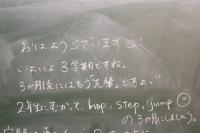 おはようございます
いよいよ3学期ですね。
3か月後にはもう「先輩」ですよ。
2年生にむかって、hop, step, jump
の3か月にしましょう。